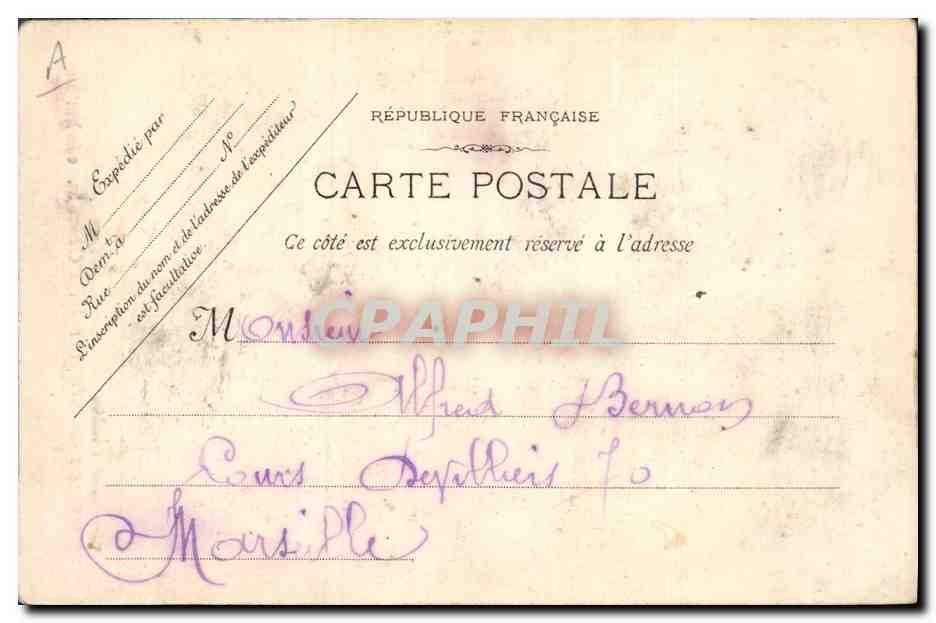 A
RÉPUBLIQUE FRANÇAISE
CARTE POSTALE
Ce côté est exclusivement réservé à l'adresse
Expédié par
M
Demt à
Rue N°
L'inscription du nom et de l'adresse de l'expéditeur
est facultative.
Monsieur
CPAPHIL
Alfred Bernon
Cours Devilliers 70
Marseille